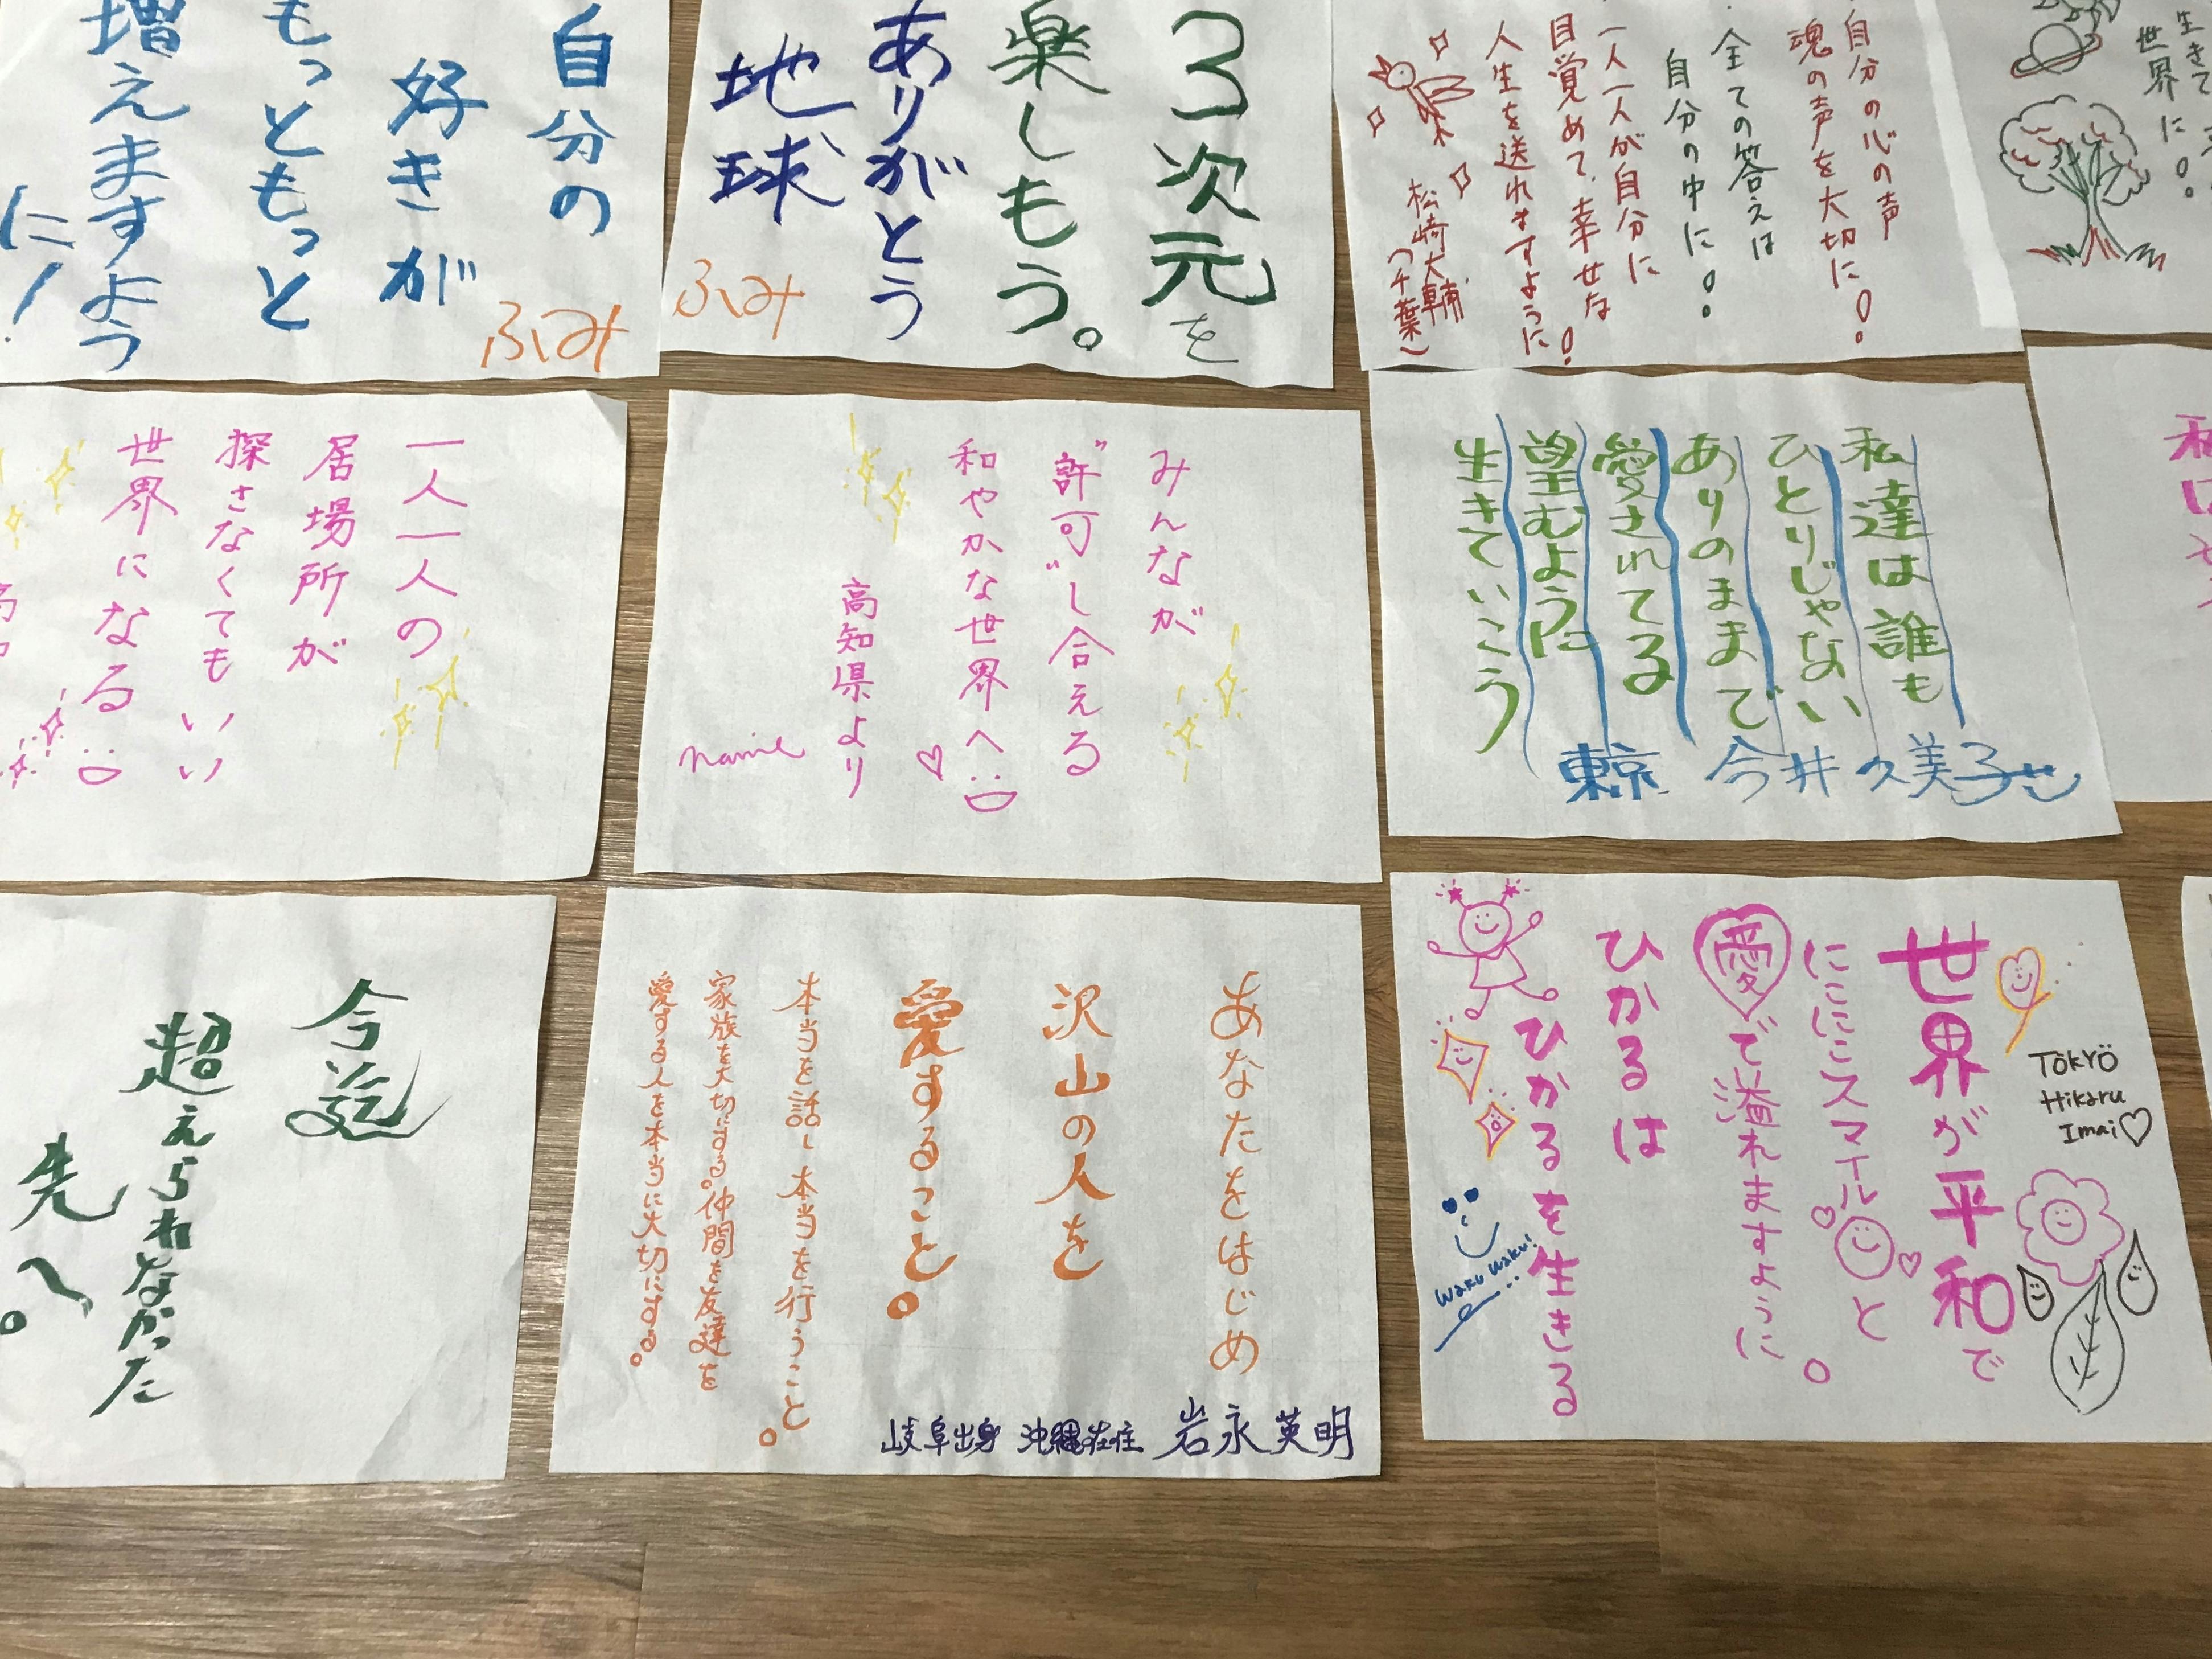 自分の
好きが
もっともっと
増えますよう
に!
ふみ
3次元を
楽しもう。
ありがとう
地球
ふみ
自分の心の声
魂の声を大切に!!
全ての答えは
自分の中に!!
一人一人が自分に
目覚めて、幸せな
人生を送れますように!
松崎大輔
(千葉)
生きて
世界に!!
一人一人の
居場所が
探さなくてもいい
世界になる
みんなが
"許可"し合える
和やかな世界へ
高知県より
namie
私達は誰も
ひとりじゃない
ありのままで
愛されてる
望むように
生きていこう
東京 今井久美子
今迄
超えられなかった
先へ。
あなたをはじめ
沢山の人を
愛すること。
本当を話し本当を行うこと。
家族を大切にする。仲間を友達を
愛する人を本当に大切にする。
岐阜出身 沖縄在住 岩永英明
世界が平和で
にこにこスマイルと
愛で溢れますように。
ひかるは
ひかるを生きる
TŌKYŌ
Hikaru
Imai
waku waku!